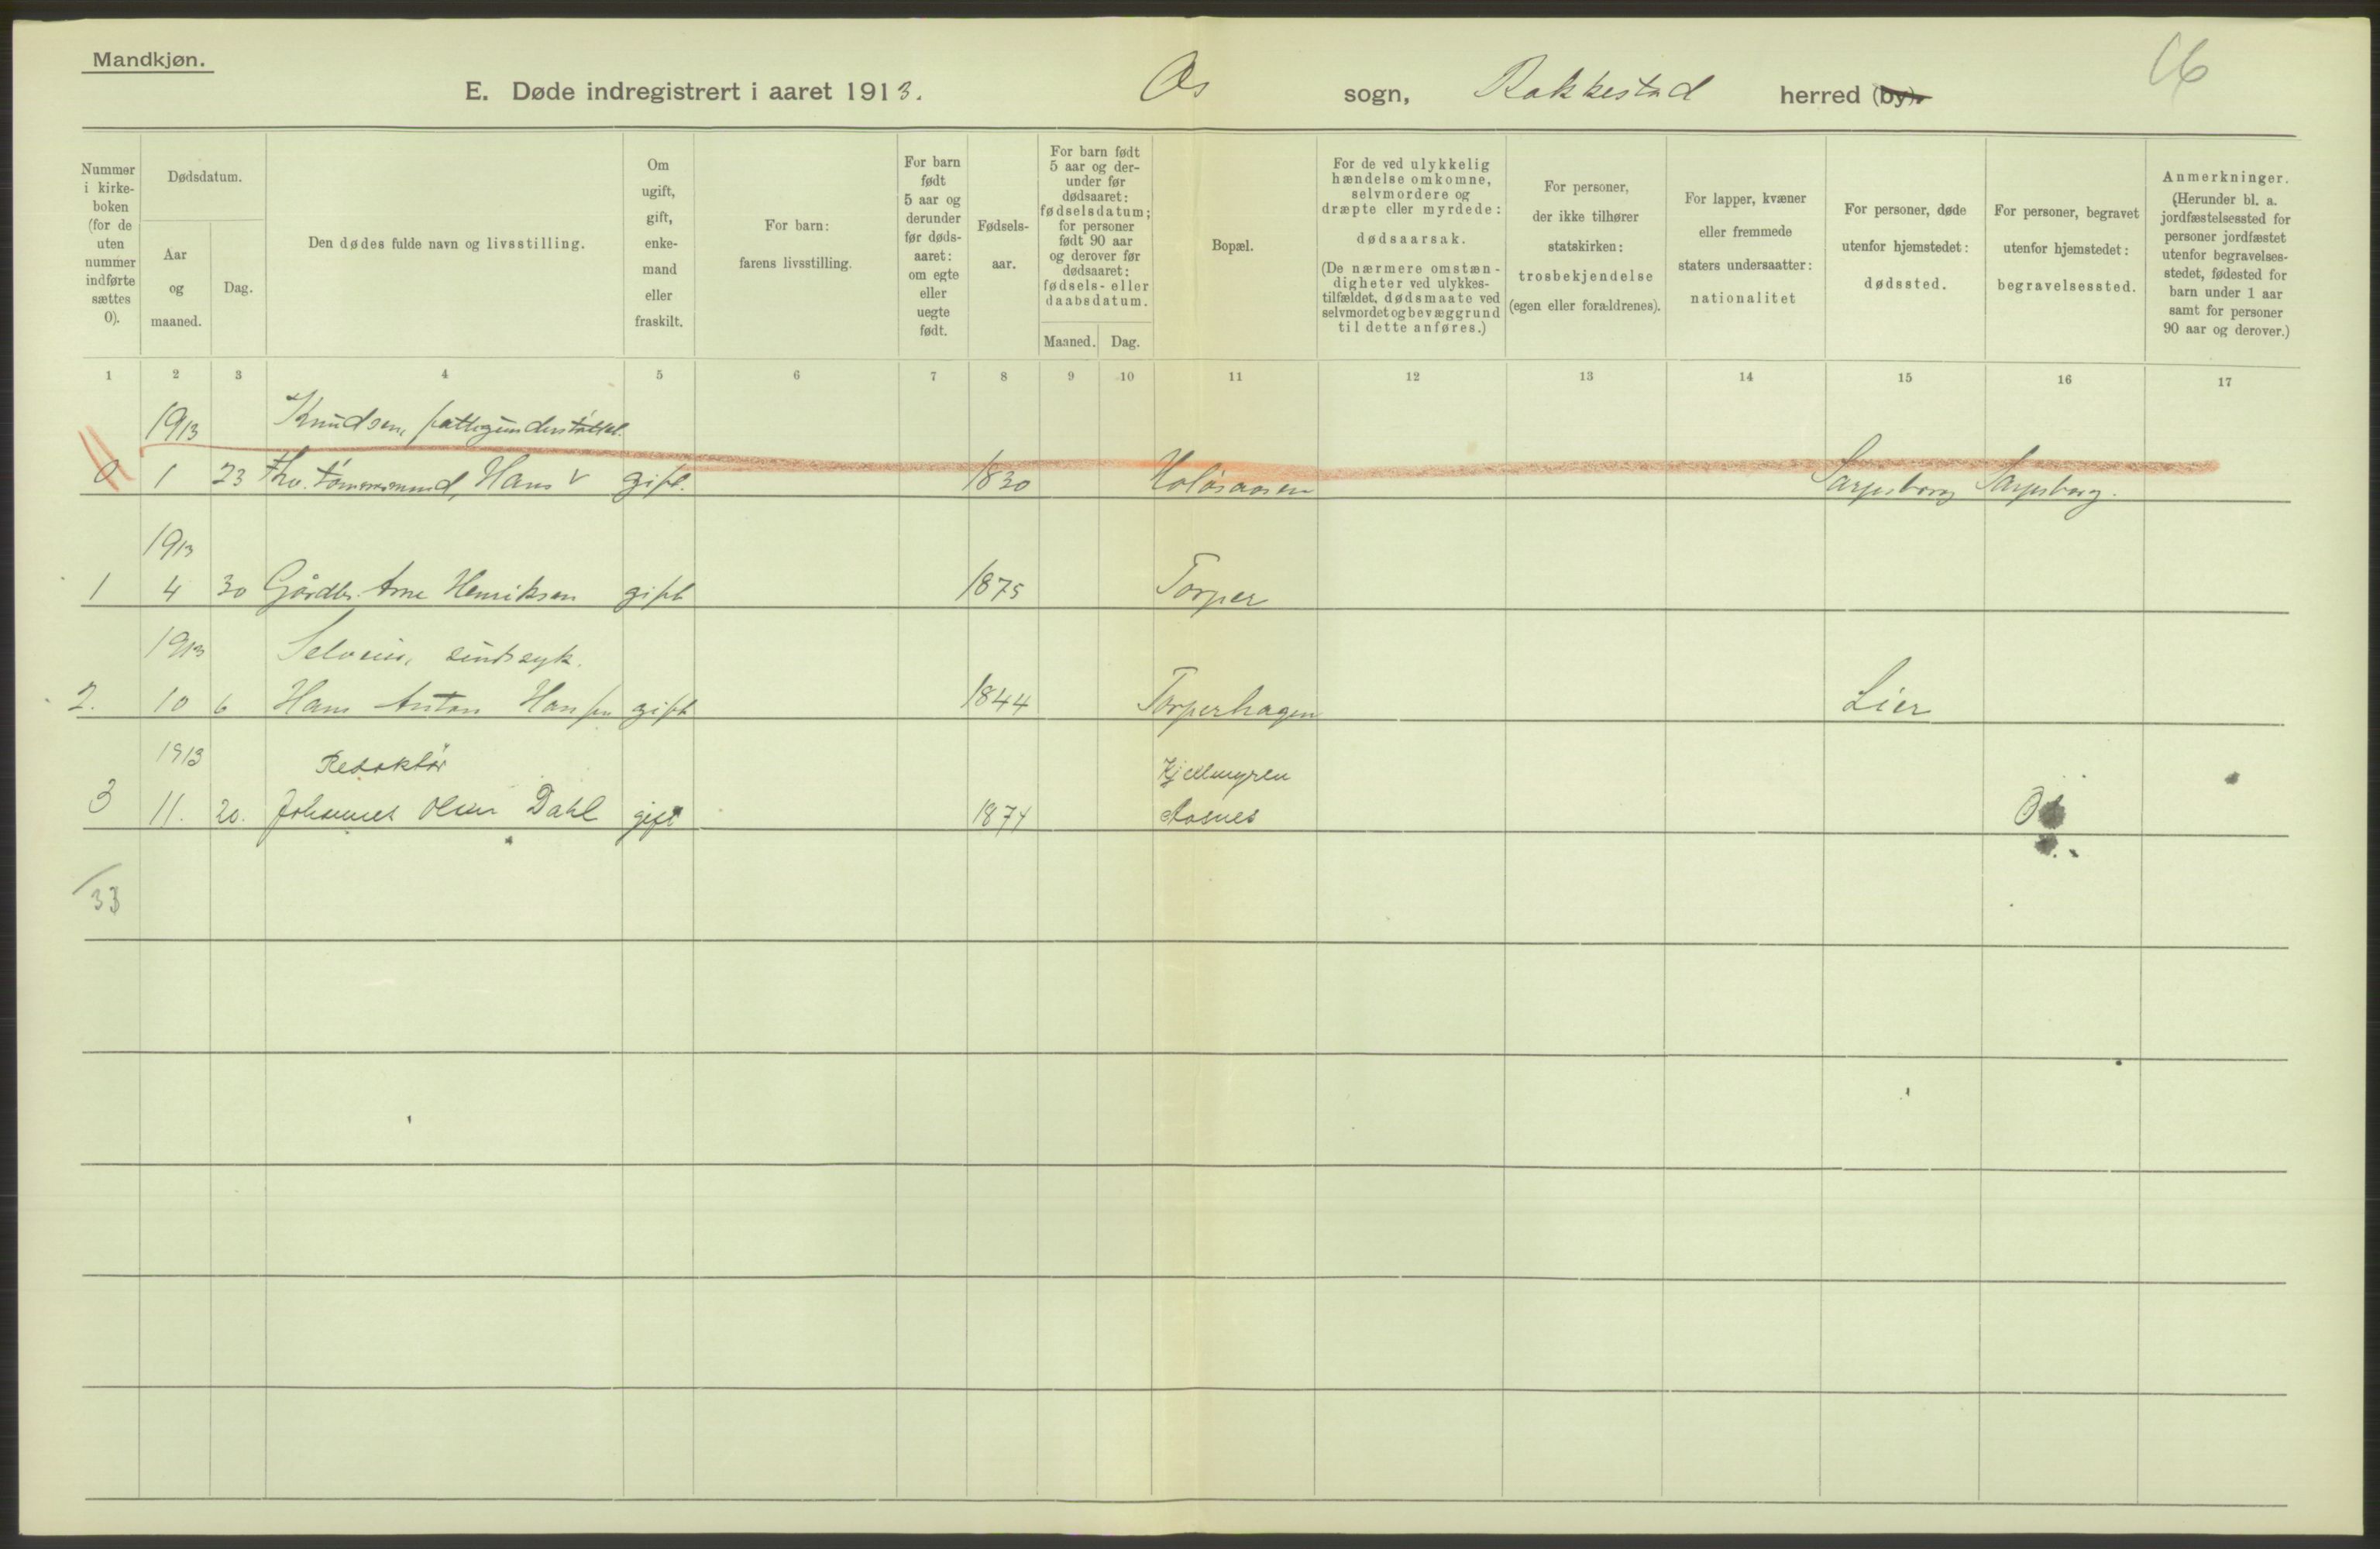 Mandkjøn.
E. Døde indregistrert i aaret 1913. Os sogn, Rakkestad herred (by).
16
Nummer i kirke-boken (for de uten nummer indførte sættes 0).
Dødsdatum.
Aar og maaned.
Dag.
Den dødes fulde navn og livsstilling.
Om ugift, gift, enke-mand eller fraskilt.
For barn: farens livsstilling.
For barn født 5 aar og derunder før døds-aaret: om egte eller uegte født.
Fødsels-aar.
For barn født 5 aar og der-under før dødsaaret: fødselsdatum; for personer født 90 aar og derover før dødsaaret: fødsels- eller daabsdatum.
Maaned. Dag.
Bopæl.
For de ved ulykkelig hændelse omkomne, selvmordere og dræpte eller myrdede: dødsaarsak. (De nærmere omstæn-digheter ved ulykkes-tilfældet, dødsmaate ved selvmordet og bevæggrund til dette anføres.)
For personer, der ikke tilhører statskirken: trosbekjendelse (egen eller forældrenes).
For lapper, kvæner eller fremmede staters undersaatter: nationalitet
For personer, døde utenfor hjemstedet: dødssted.
For personer, begravet utenfor hjemstedet: begravelsessted.
Anmerkninger. (Herunder bl. a. jordfæstelsessted for personer jordfæstet utenfor begravelses-stedet, fødested for barn under 1 aar samt for personer 90 aar og derover.)
1 2 3 4 5 6 7 8 9 10 11 12 13 14 15 16 17
1913 Knudsen, fattigunderstøttet.
0 1 23 fhv. tømmermand, Hans gift. 1830 Sarpsborg Sarpsborg.
1913
1 4 30 Gårdbr. Arne Henriksen gift 1875 Torper
1913 Selveier, sindssyk.
2. 10 6 Hans Anton Hansen gift 1844 Torperhagen Lier
1913 Redaktør Kjellmyren
3 11. 20. Johannes Olsen Dahl gift 1874 Aasnes
33